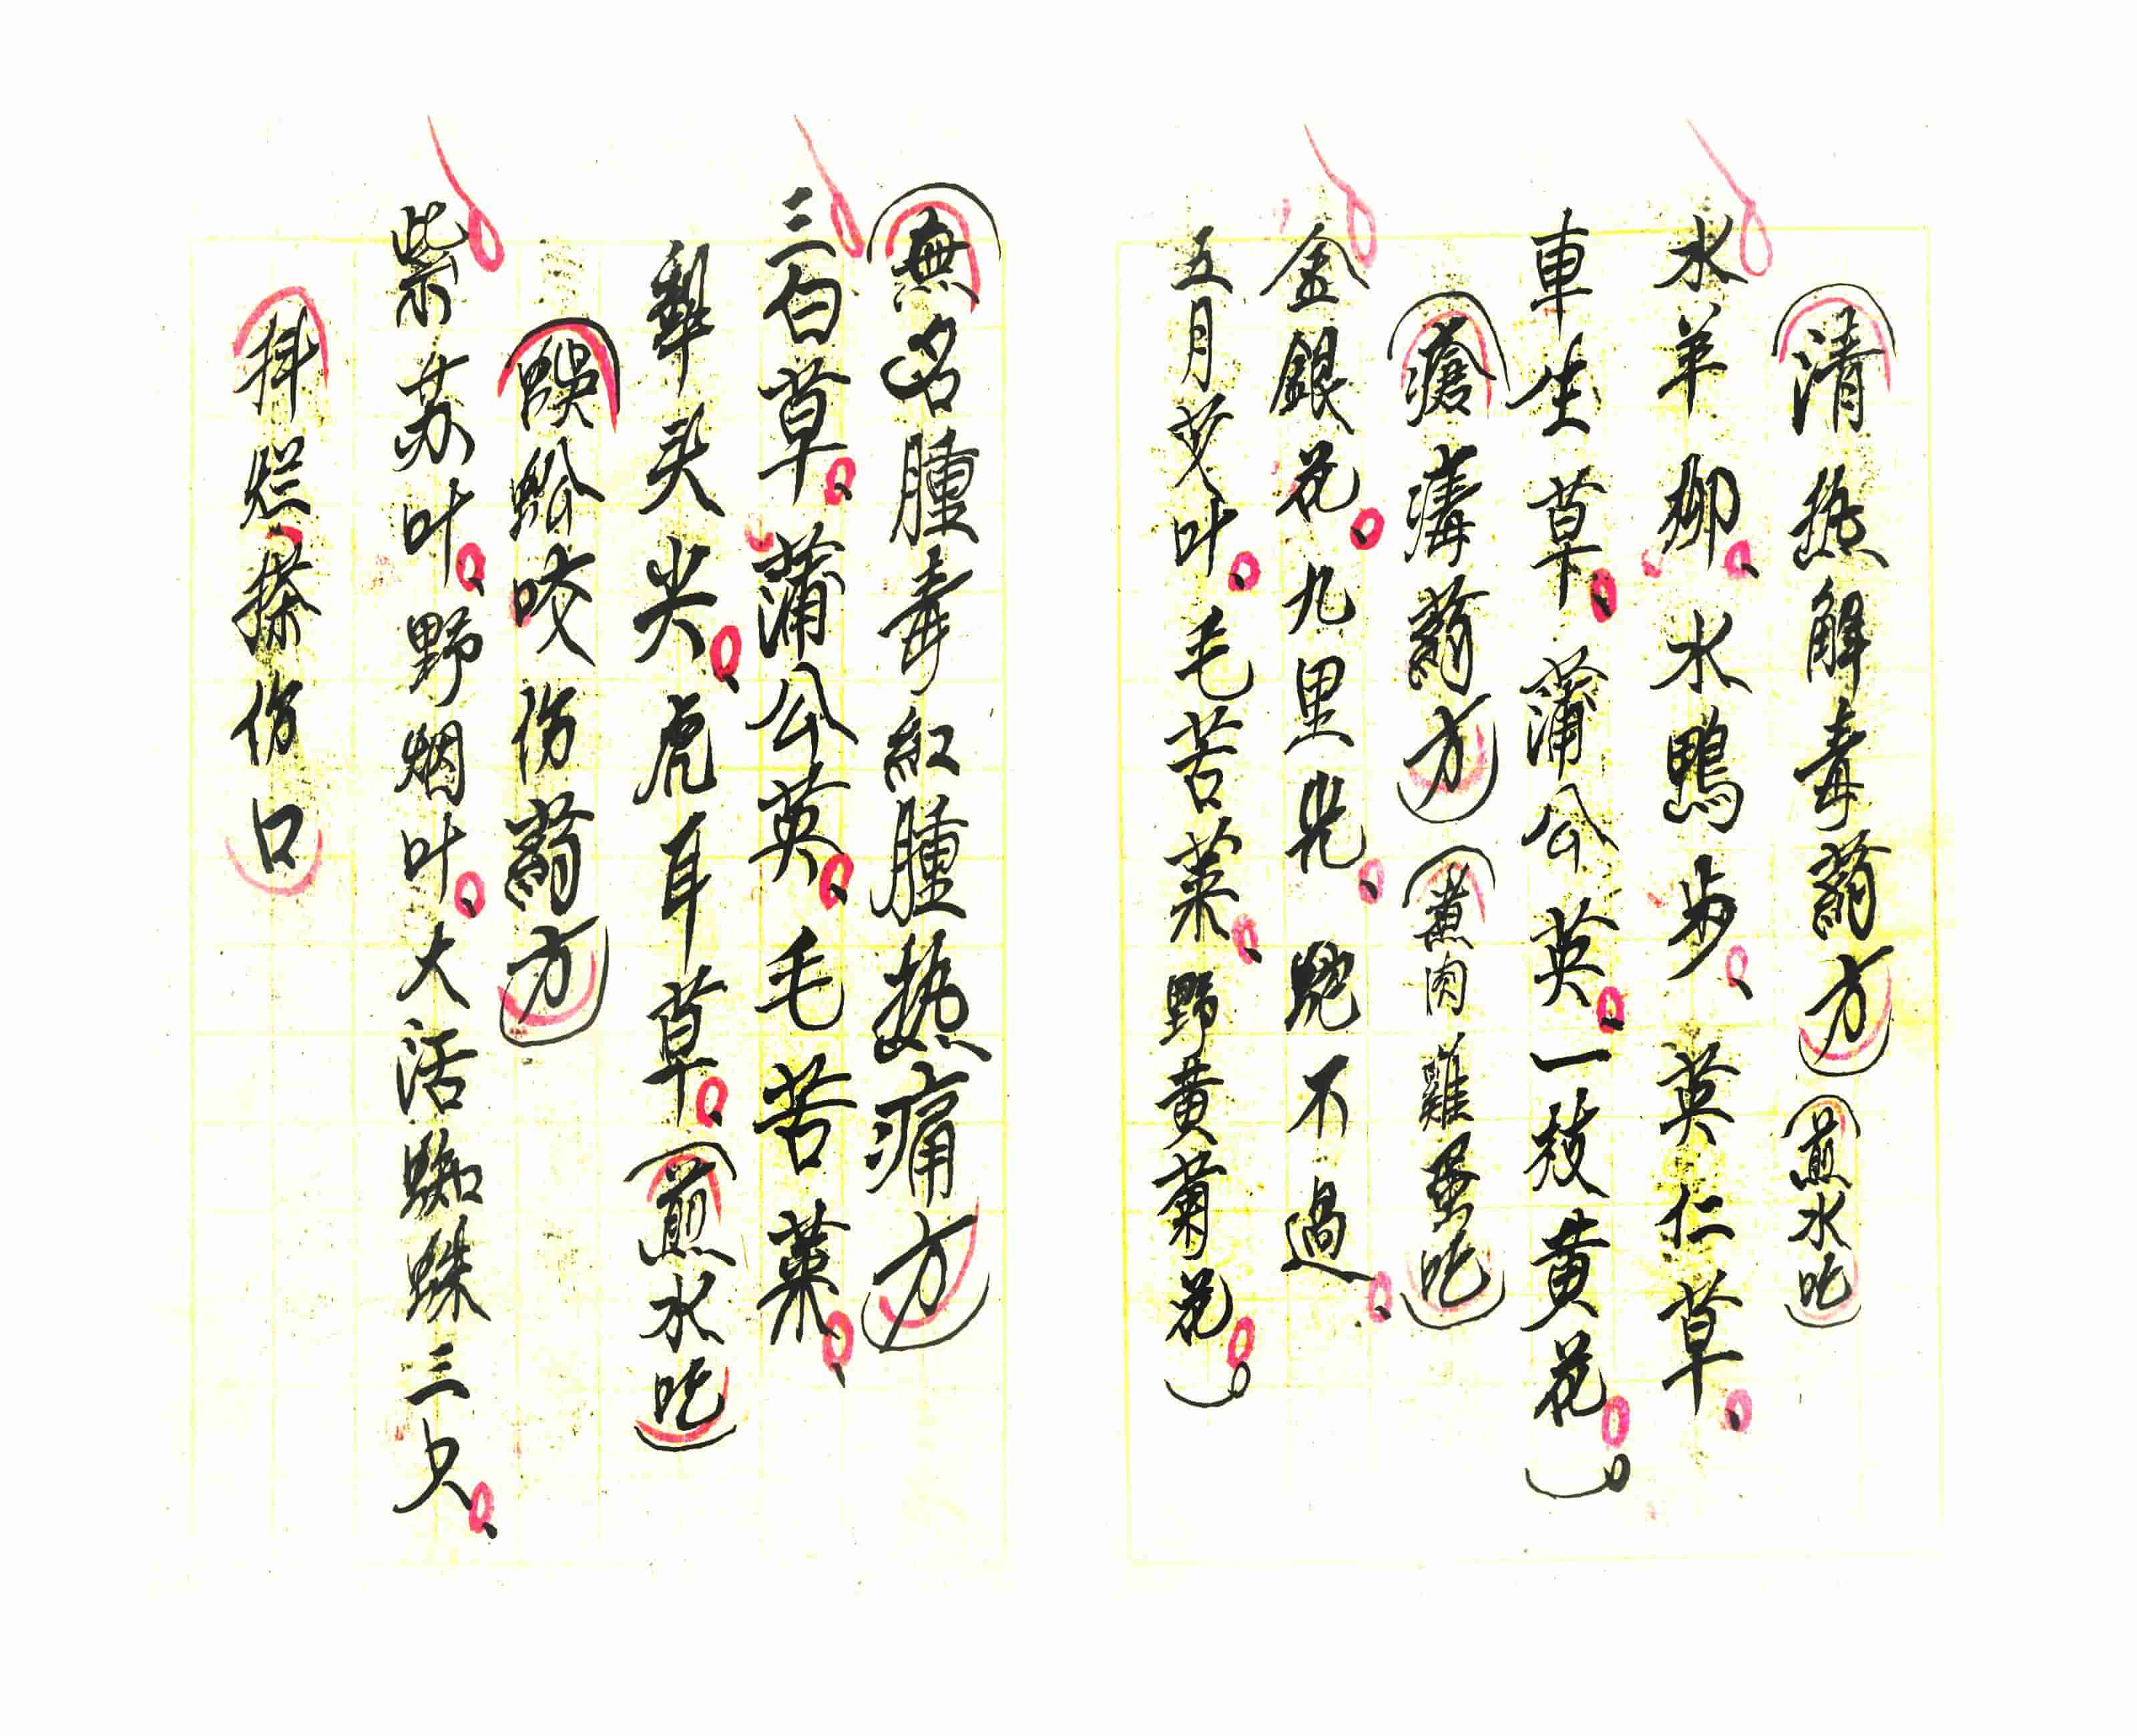 (清热解毒药方)(煎水吃)
水羊柳、水鸭步、英仁草、
車生草、蒲公英、一枝黄花、)
(瘡毒药方)(煮肉雞蛋吃)
金銀花、九里光、蛇不過、
五月艾叶、毛苦菜、野黄菊花、)
(無名腫毒紅腫热痛方)
三白草、蒲公英、毛苦菜、
犁头尖、虎耳草、(煎水吃)
(蜈蚣咬伤药方)
紫苏叶、野烟叶、大活蜘蛛三只、
(抖烂、搽伤口)